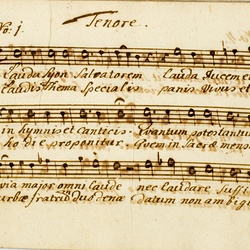 No: 1.
Tenore.
Lauda Syon Salvatorem Lauda Ducem et
Laudis Thema Specialis panis Vivus et
in hymnis et Canticis. Quantum potes tantum
ho die proponitur. Quem in Sacræ mensæ
via major omni laude nec laudare suffi
turbæ fratrum duodenæ datum non ambigi